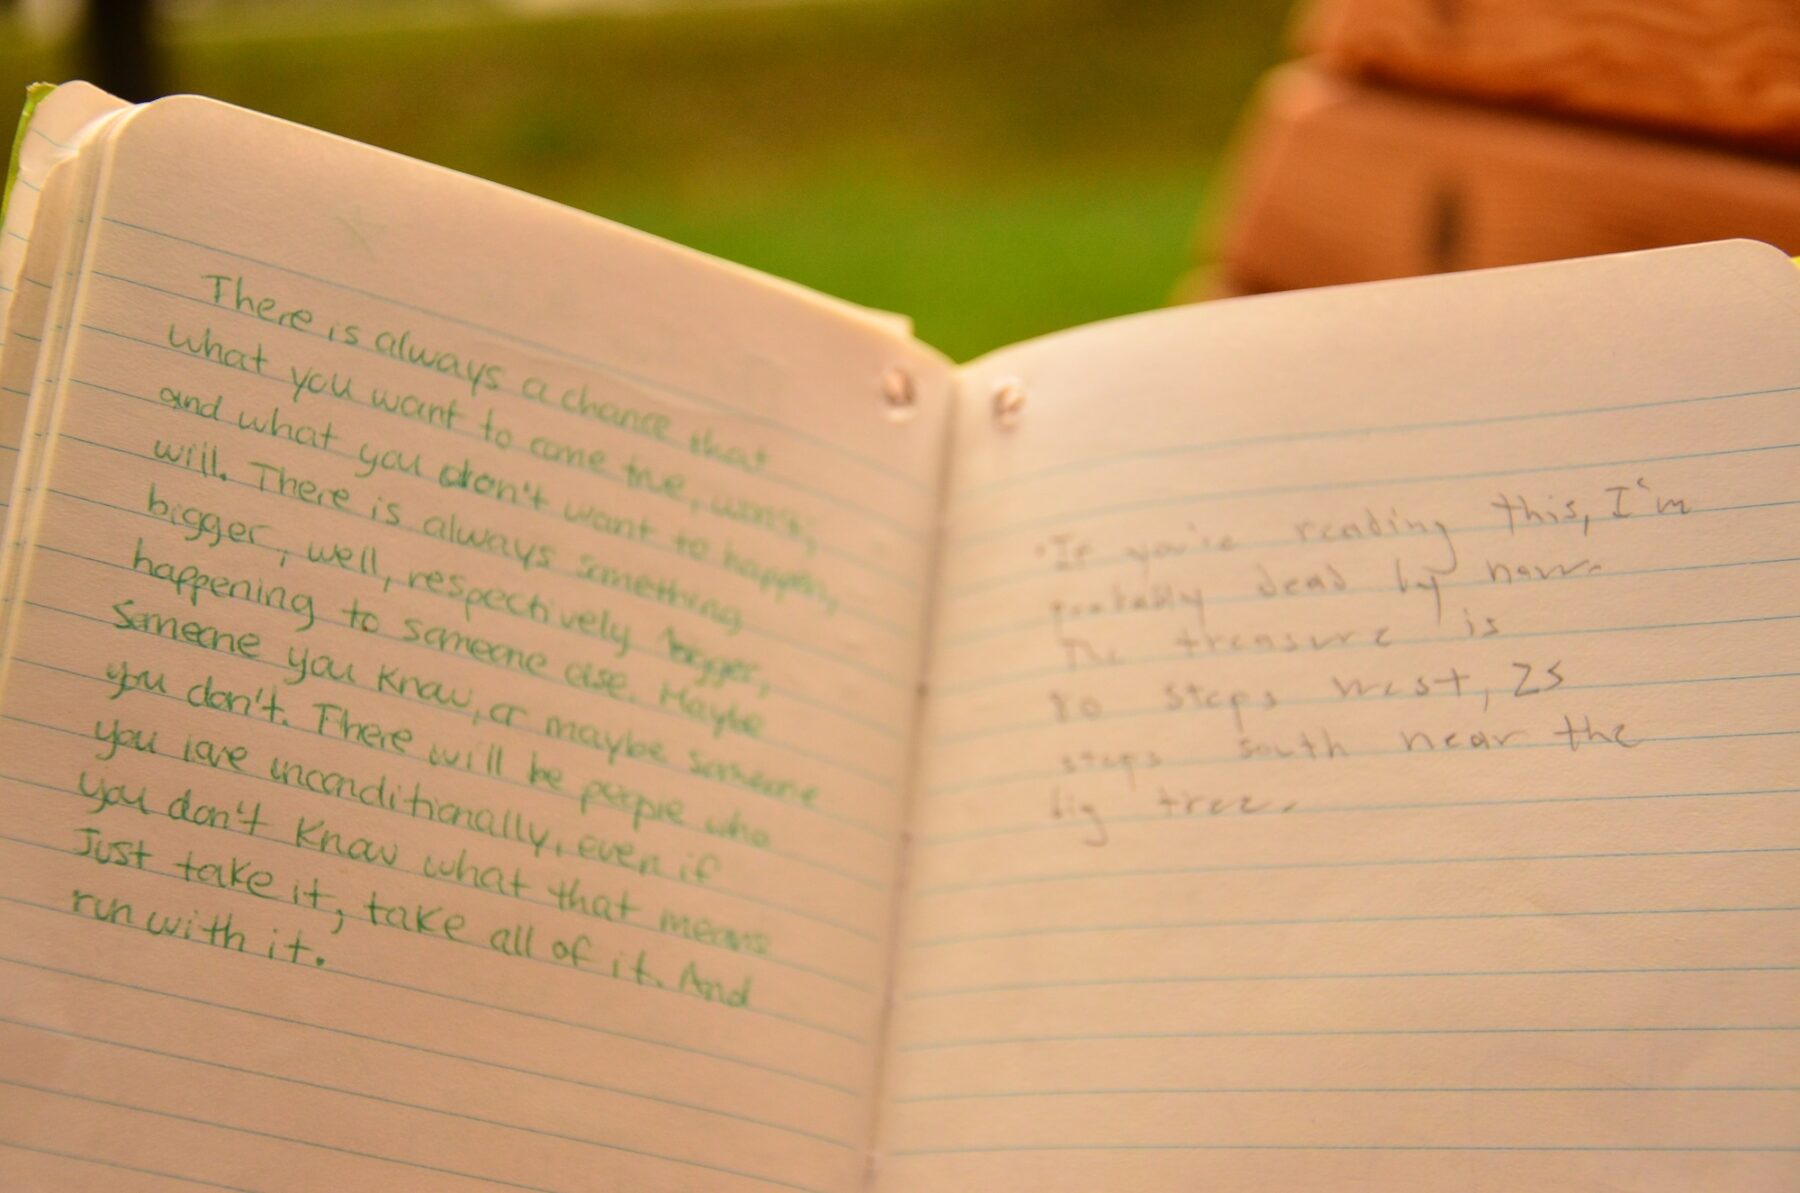 There is always a chance that
what you want to come true, won't;
and what you don't want to happen,
will. There is always something
bigger, well, respectively bigger,
happening to someone else. Maybe
someone you know, or maybe someone
you don't. There will be people who
you love unconditionally, even if
you don't know what that means
Just take it, take all of it. And
run with it.
If you're reading this, I'm
probably dead by now.
The treasure is
steps west, 25
steps south near the
big tree.